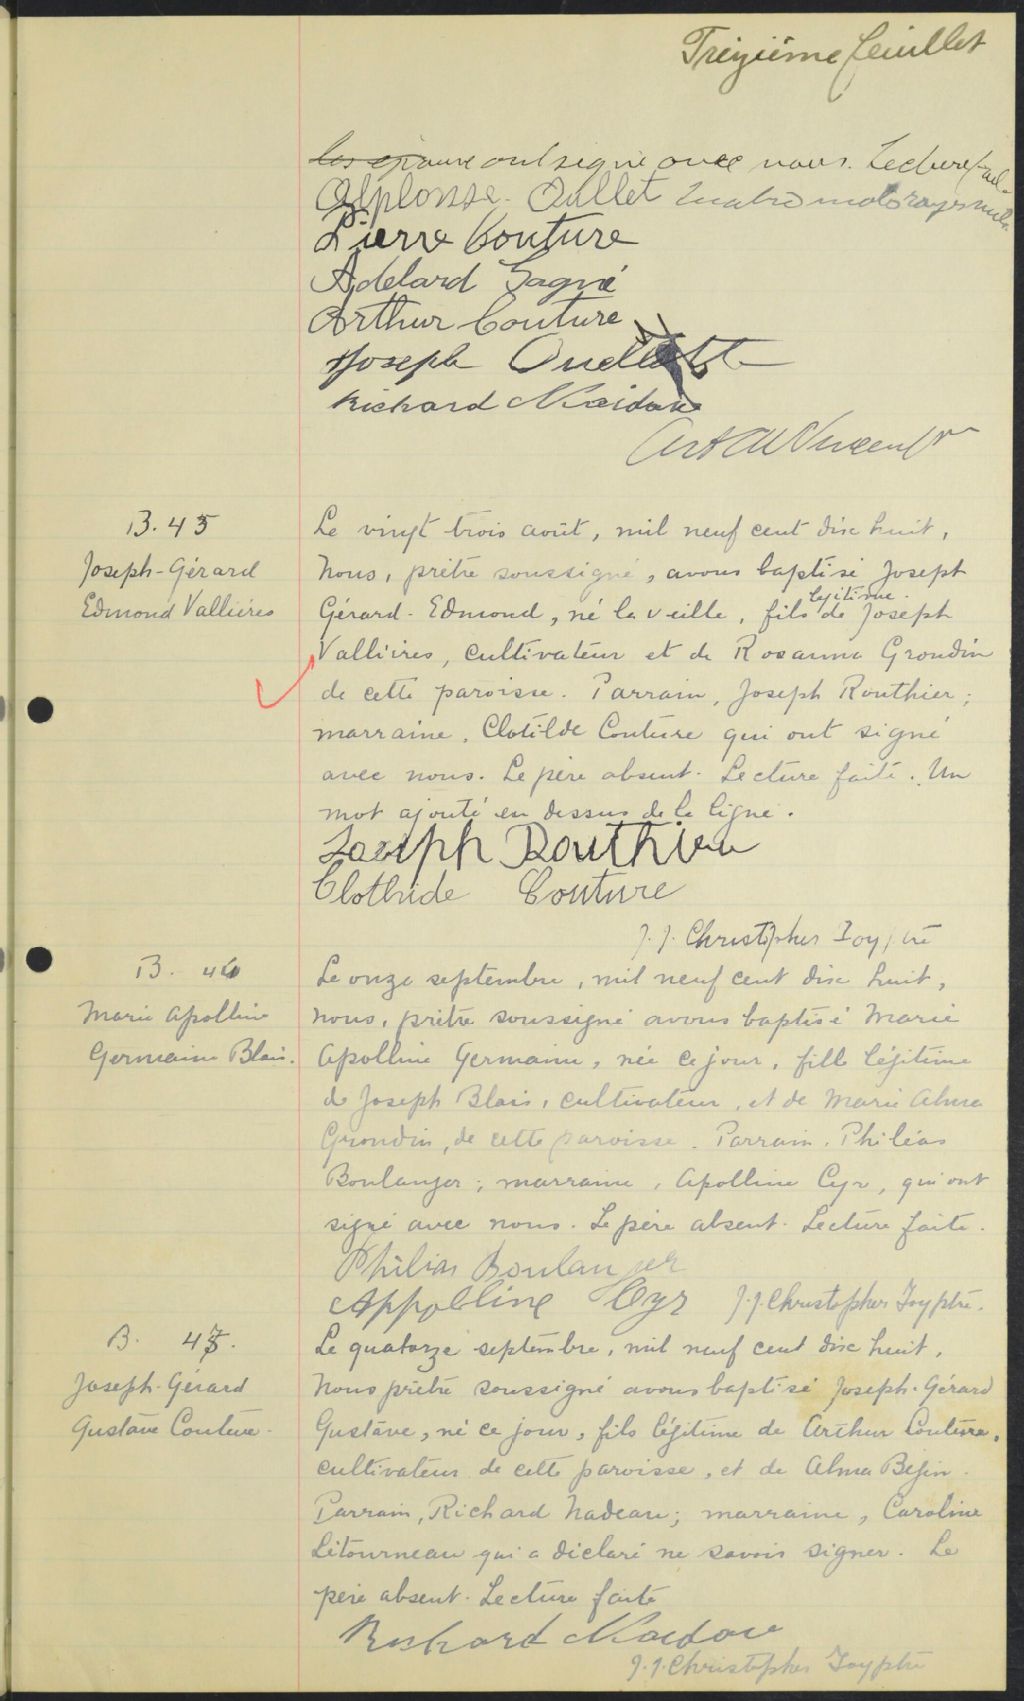 Treizième feuillet
ont signé avec nous. Lecture faite.
Alphonse Oullet quatre mots rayés nuls
Pierre Couture
Adelard Gagné
Arthur Couture
Joseph Ouellette
Richard Naidau
B. 45
Joseph-Gérard
Edmond Vallières
Le vingt trois août, mil neuf cent dix huit,
Nous, prêtre soussigné, avons baptisé Joseph
légitime
Gérard-Edmond, né la veille, fils de Joseph
Vallières, cultivateur et de Rosanna Grondin
de cette paroisse. Parrain, Joseph Routhier;
marraine, Clotilde Couture qui ont signé
avec nous. Le père absent. Lecture faite. Un
mot ajouté en dessus de la ligne.
Joseph Routhier
Clothide Couture
J. J. Christopher Foy ptre
B. 46
Marie Apolline
Germaine Blais.
Le onze septembre, mil neuf cent dix huit,
nous, prêtre soussigné avons baptisé Marie
Apolline Germaine, née ce jour, fille légitime
de Joseph Blais, cultivateur, et de Marie Alma
Grondin, de cette paroisse. Parrain, Philéas
Boulanger; marraine, Apolline Cyr, qui ont
signé avec nous. Le père absent. Lecture faite.
Philias Boulanger
Appolline Cyr J. J. Christopher Foy ptre.
B. 47.
Joseph-Gérard
Gustave Couture.
Le quatorze septembre, mil neuf cent dix huit,
Nous prêtre soussigné avons baptisé Joseph-Gérard
Gustave, né ce jour, fils légitime de Arthur Couture,
cultivateur de cette paroisse, et de Alma Bégin.
Parrain, Richard Nadeau; marraine, Caroline
Létourneau qui a déclaré ne savoir signer. Le
père absent. Lecture faite
Richard Nadau
J. J. Christopher Foy ptre